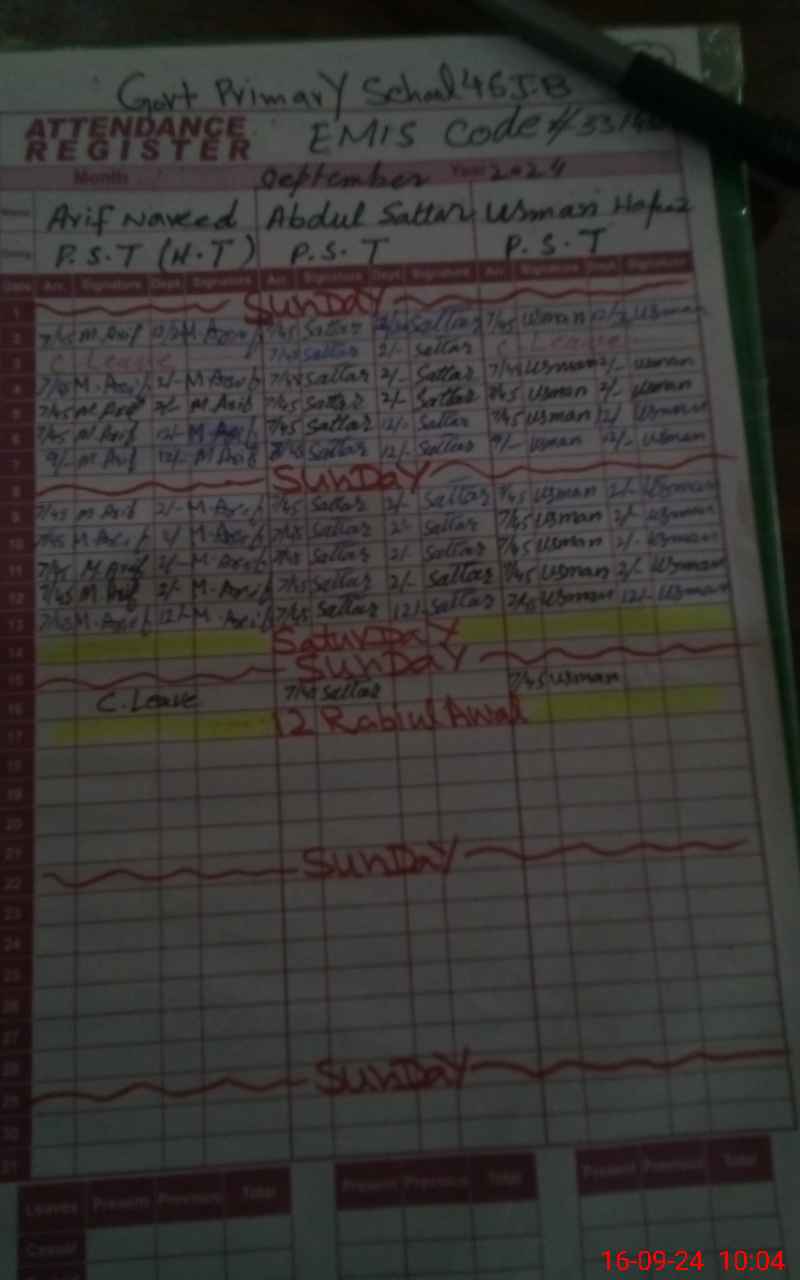 Govt Primary School 46 J.B
ATTENDANCE REGISTER EMIS Code #
Month September Year 2024
Name Arif Naveed Abdul Sattar Usman
P.S.T (H.T) P.S.T P.S.T
Date Arr. Signature Dept. Signature Arr. Signature Dept. Signature Arr. Signature Dept. Signature
1 SUNDAY
2 7/45 M.Arif M.Arif 7/45 Sattar Sattar 7/45 Usman Usman
3 C.Leave 7/45 Sattar 2/- Sattar C.Leave
4 7/45 M.Arif 2/- M.Arif 7/45 Sattar 2/- Sattar 7/45 Usman 2/- Usman
5 7/45 M.Arif 2/- M Arif 7/45 Sattar 2/- Sattar 7/45 Usman 2/- Usman
6 7/45 M Arif 12/- M.Arif 7/45 Sattar 12/- Sattar 7/45 Usman 12/- Usman
7 9/- M Arif 12/- M Arif Sattar 12/- Sattar 9/- Usman 12/- Usman
8 SUNDAY
9 7/45 M Arif 2/- M.Arif 7/45 Sattar 2/- Sattar 7/45 Usman 2/- Usman
10 7/45 M.Arif 2/- M.Arif 7/45 Sattar 2/- Sattar 7/45 Usman 2/- Usman
11 7/45 M.Arif 2/- M.Arif 7/45 Sattar 2/- Sattar 7/45 Usman 2/- Usman
12 7/45 M Arif 2/- M.Arif 7/45 Sattar 2/- Sattar 7/45 Usman 2/- Usman
13 7/45 M.Arif 12/- M.Arif 7/45 Sattar 12/- Sattar 7/45 Usman 12/- Usman
14 SaturDaY
15 SUNDAY
16 C.Leave 7/45 Sattar 7/45 Usman
17 12 Rabiul Awal
18
19
20
21
22 SUNDAY
23
24
25
26
27
28
29 SUNDAY
30
31
Leaves Present Previous Total Present Previous Total Present Previous Total
Casual
16-09-24 10:04